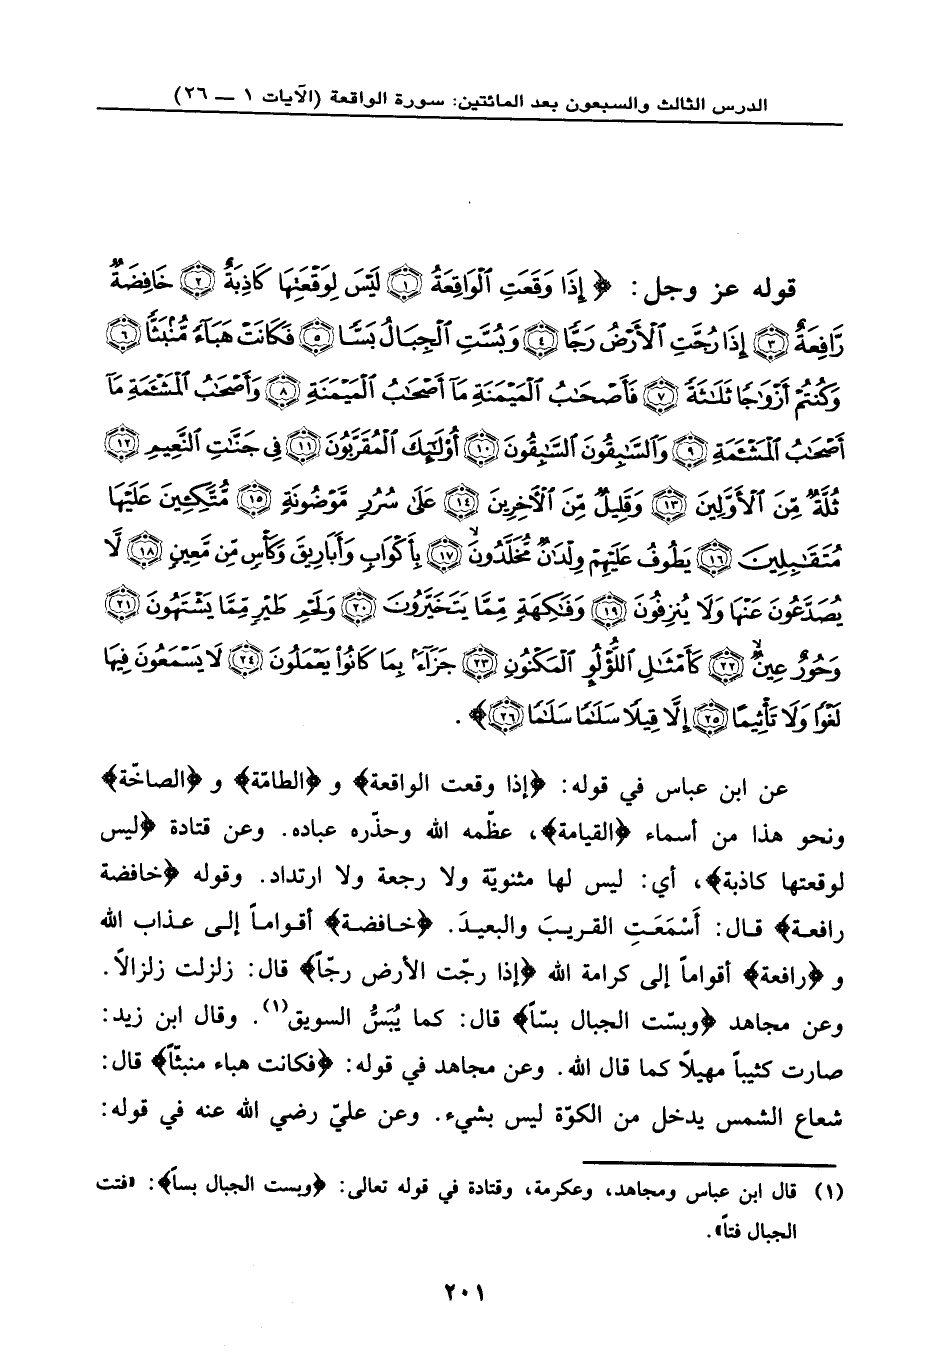 الدرس الثالث والسبعون بعد المائتين: سورة الواقعة (الآيات ١ ــ ٢٦)
قوله عز وجل: ﴿ إِذَا وَقَعَتِ ٱلْوَاقِعَةُ ﴿١﴾ لَيْسَ لِوَقْعَتِهَا كَاذِبَةٌ ﴿٢﴾ خَافِضَةٌ
رَّافِعَةٌ ﴿٣﴾ إِذَا رُجَّتِ ٱلْأَرْضُ رَجًّا ﴿٤﴾ وَبُسَّتِ ٱلْجِبَالُ بَسًّا ﴿٥﴾ فَكَانَتْ هَبَآءً مُّنۢبَثًّا ﴿٦﴾
وَكُنتُمْ أَزْوَٰجًا ثَلَٰثَةً ﴿٧﴾ فَأَصْحَٰبُ ٱلْمَيْمَنَةِ مَآ أَصْحَٰبُ ٱلْمَيْمَنَةِ ﴿٨﴾ وَأَصْحَٰبُ ٱلْمَشْـَٔمَةِ مَآ
أَصْحَٰبُ ٱلْمَشْـَٔمَةِ ﴿٩﴾ وَٱلسَّٰبِقُونَ ٱلسَّٰبِقُونَ ﴿١٠﴾ أُو۟لَٰٓئِكَ ٱلْمُقَرَّبُونَ ﴿١١﴾ فِى جَنَّٰتِ ٱلنَّعِيمِ ﴿١٢﴾
ثُلَّةٌ مِّنَ ٱلْأَوَّلِينَ ﴿١٣﴾ وَقَلِيلٌ مِّنَ ٱلْآخِرِينَ ﴿١٤﴾ عَلَىٰ سُرُرٍ مَّوْضُونَةٍ ﴿١٥﴾ مُّتَّكِـِٔينَ عَلَيْهَا
مُتَقَٰبِلِينَ ﴿١٦﴾ يَطُوفُ عَلَيْهِمْ وِلْدَٰنٌ مُّخَلَّدُونَ ﴿١٧﴾ بِأَكْوَابٍ وَأَبَارِيقَ وَكَأْسٍ مِّن مَّعِينٍ ﴿١٨﴾ لَّا
يُصَدَّعُونَ عَنْهَا وَلَا يُنزِفُونَ ﴿١٩﴾ وَفَٰكِهَةٍ مِّمَّا يَتَخَيَّرُونَ ﴿٢٠﴾ وَلَحْمِ طَيْرٍ مِّمَّا يَشْتَهُونَ ﴿٢١﴾
وَحُورٌ عِينٌ ﴿٢٢﴾ كَأَمْثَٰلِ ٱللُّؤْلُؤِ ٱلْمَكْنُونِ ﴿٢٣﴾ جَزَآءًۢ بِمَا كَانُوا۟ يَعْمَلُونَ ﴿٢٤﴾ لَا يَسْمَعُونَ فِيهَا
لَغْوًا وَلَا تَأْثِيمًا ﴿٢٥﴾ إِلَّا قِيلًا سَلَٰمًا سَلَٰمًا ﴿٢٦﴾ ﴾ .
عن ابن عباس في قوله: ﴿إذا وقعت الواقعة﴾ و ﴿الطامّة﴾ و ﴿الصاخّة﴾
ونحو هذا من أسماء ﴿القيامة﴾، عظّمه الله وحذّره عباده. وعن قتادة ﴿ليس
لوقعتها كاذبة﴾، أي: ليس لها مثنويّة ولا رجعة ولا ارتداد. وقوله ﴿خافضة
رافعة﴾ قال: أَسْمَعَتِ القريبَ والبعيدَ. ﴿خافضة﴾ أقواماً إلى عذاب الله
و ﴿رافعة﴾ أقواماً إلى كرامة الله ﴿إذا رجّت الأرض رجّاً﴾ قال: زلزلت زلزالاً.
وعن مجاهد ﴿وبسّت الجبال بسّاً﴾ قال: كما يُبَسُّ السويق(١). وقال ابن زيد:
صارت كثيباً مهيلاً كما قال الله. وعن مجاهد في قوله: ﴿فكانت هباء منبثّاً﴾ قال:
شعاع الشمس يدخل من الكوّة ليس بشيء. وعن عليّ رضي الله عنه في قوله:
(١) قال ابن عباس ومجاهد، وعكرمة، وقتادة في قوله تعالى: ﴿وبست الجبال بساً﴾: «فتت
الجبال فتاً».
٢٠١